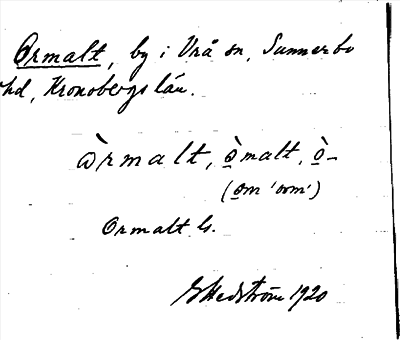 Ormalt, by i Vrå sn, Sunnerbo
hd, Kronobergs län.
òrmalt, ȯ̱̀malt, ò̱-
(o̱m 'orm')
Ormalt G.
G Hedström 1920